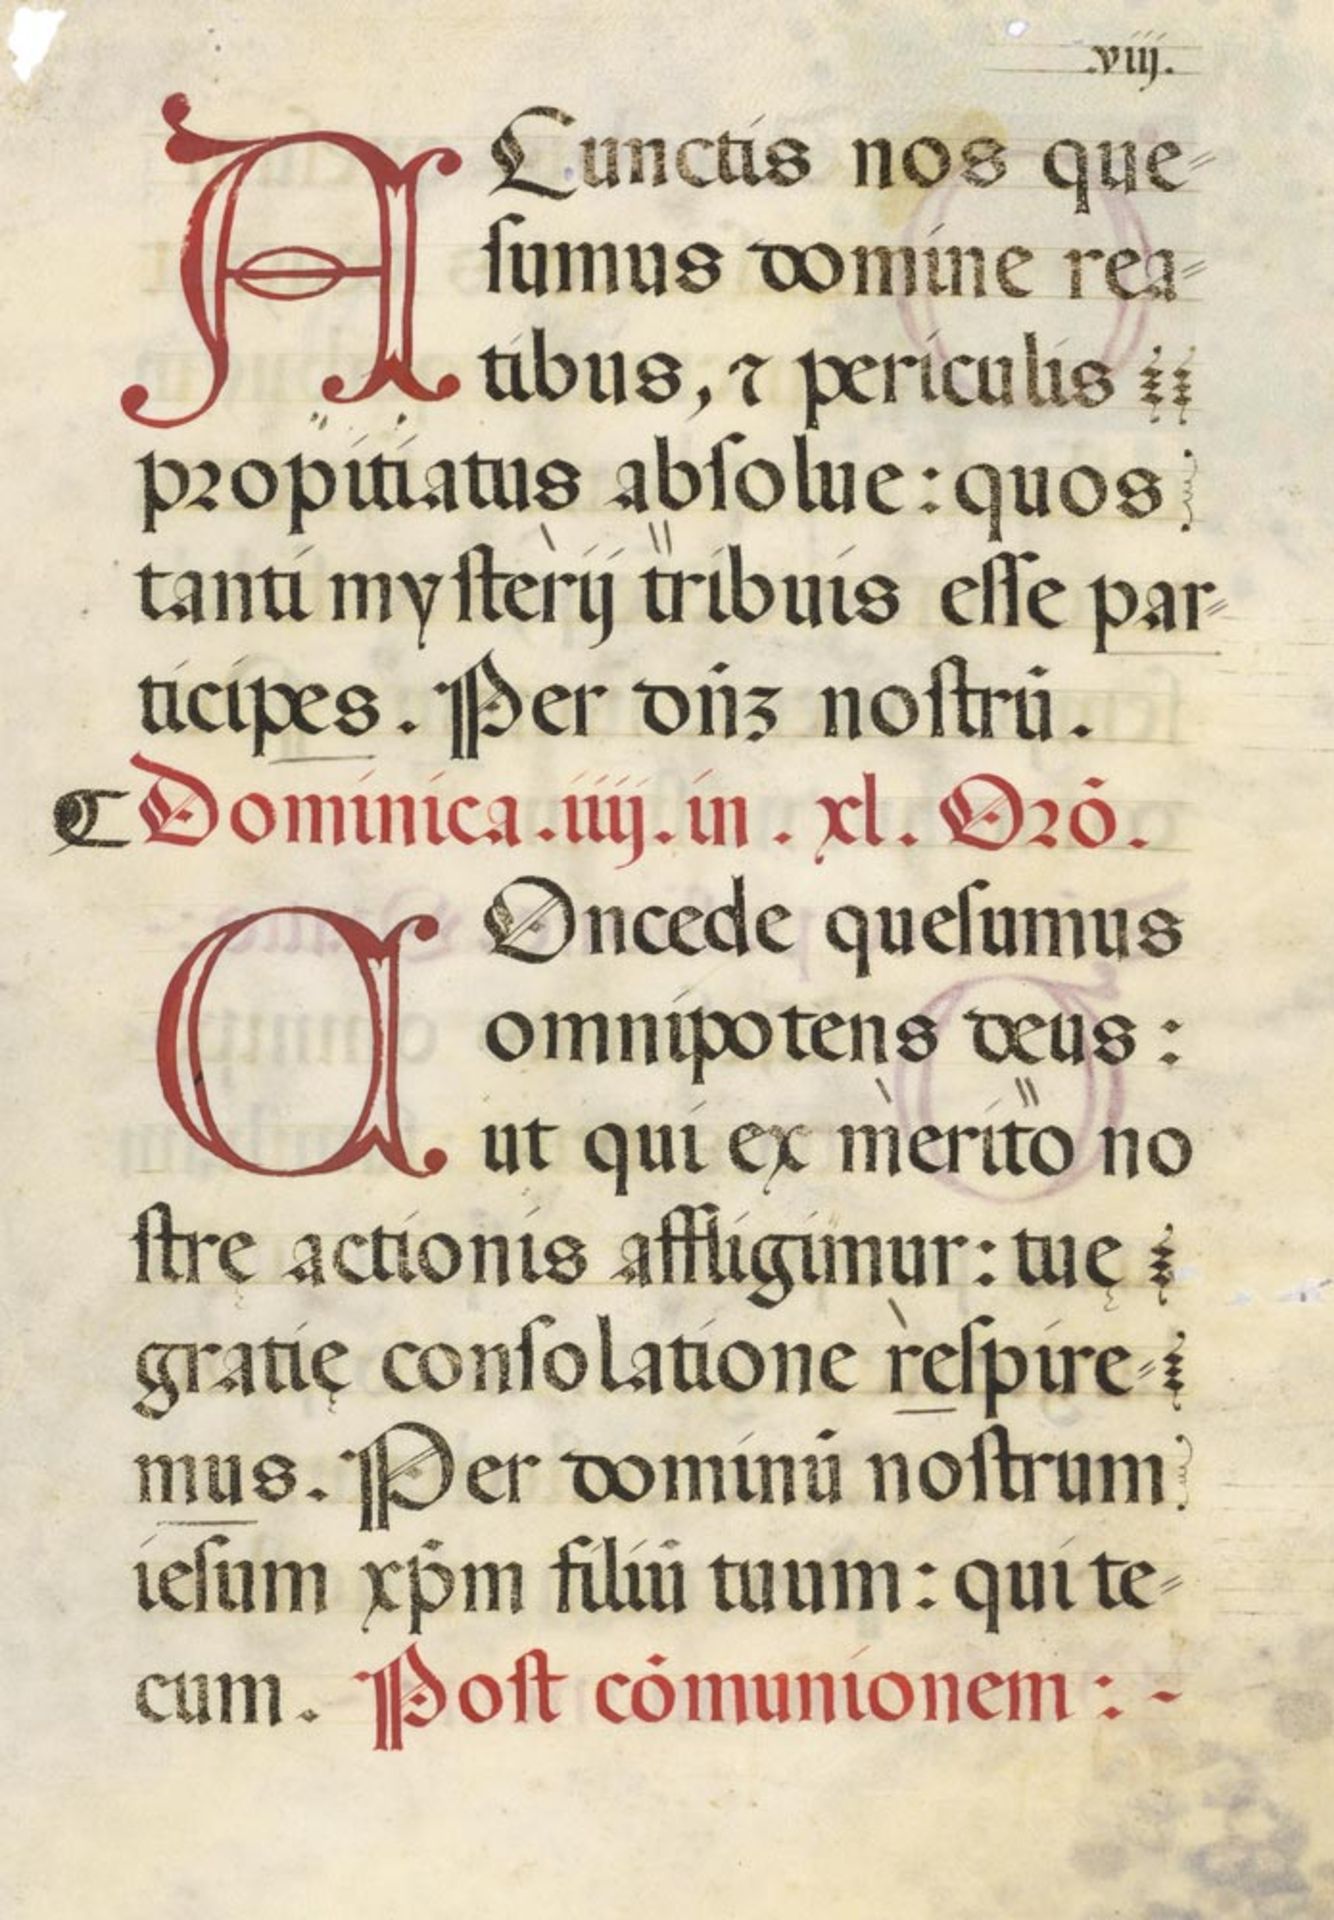 .viij.
A Cunctis nos que=
sumus domine rea=
tibus, ⁊ periculis
propitiatus absolue: quos
tanti mysterij tribuis esse par=
ticipes. Per dñꝫ nostrū.
¶ Dominica .iiij. in . xl. Orō.
COncede quesumus
omnipotens deus:
ut qui ex merito no
strę actionis affligimur: tuę
gratię consolatione respire=
mus. Per dominū nostrum
iesum xp̄m filiū tuum: qui te=
cum. Post cōmunionem : -